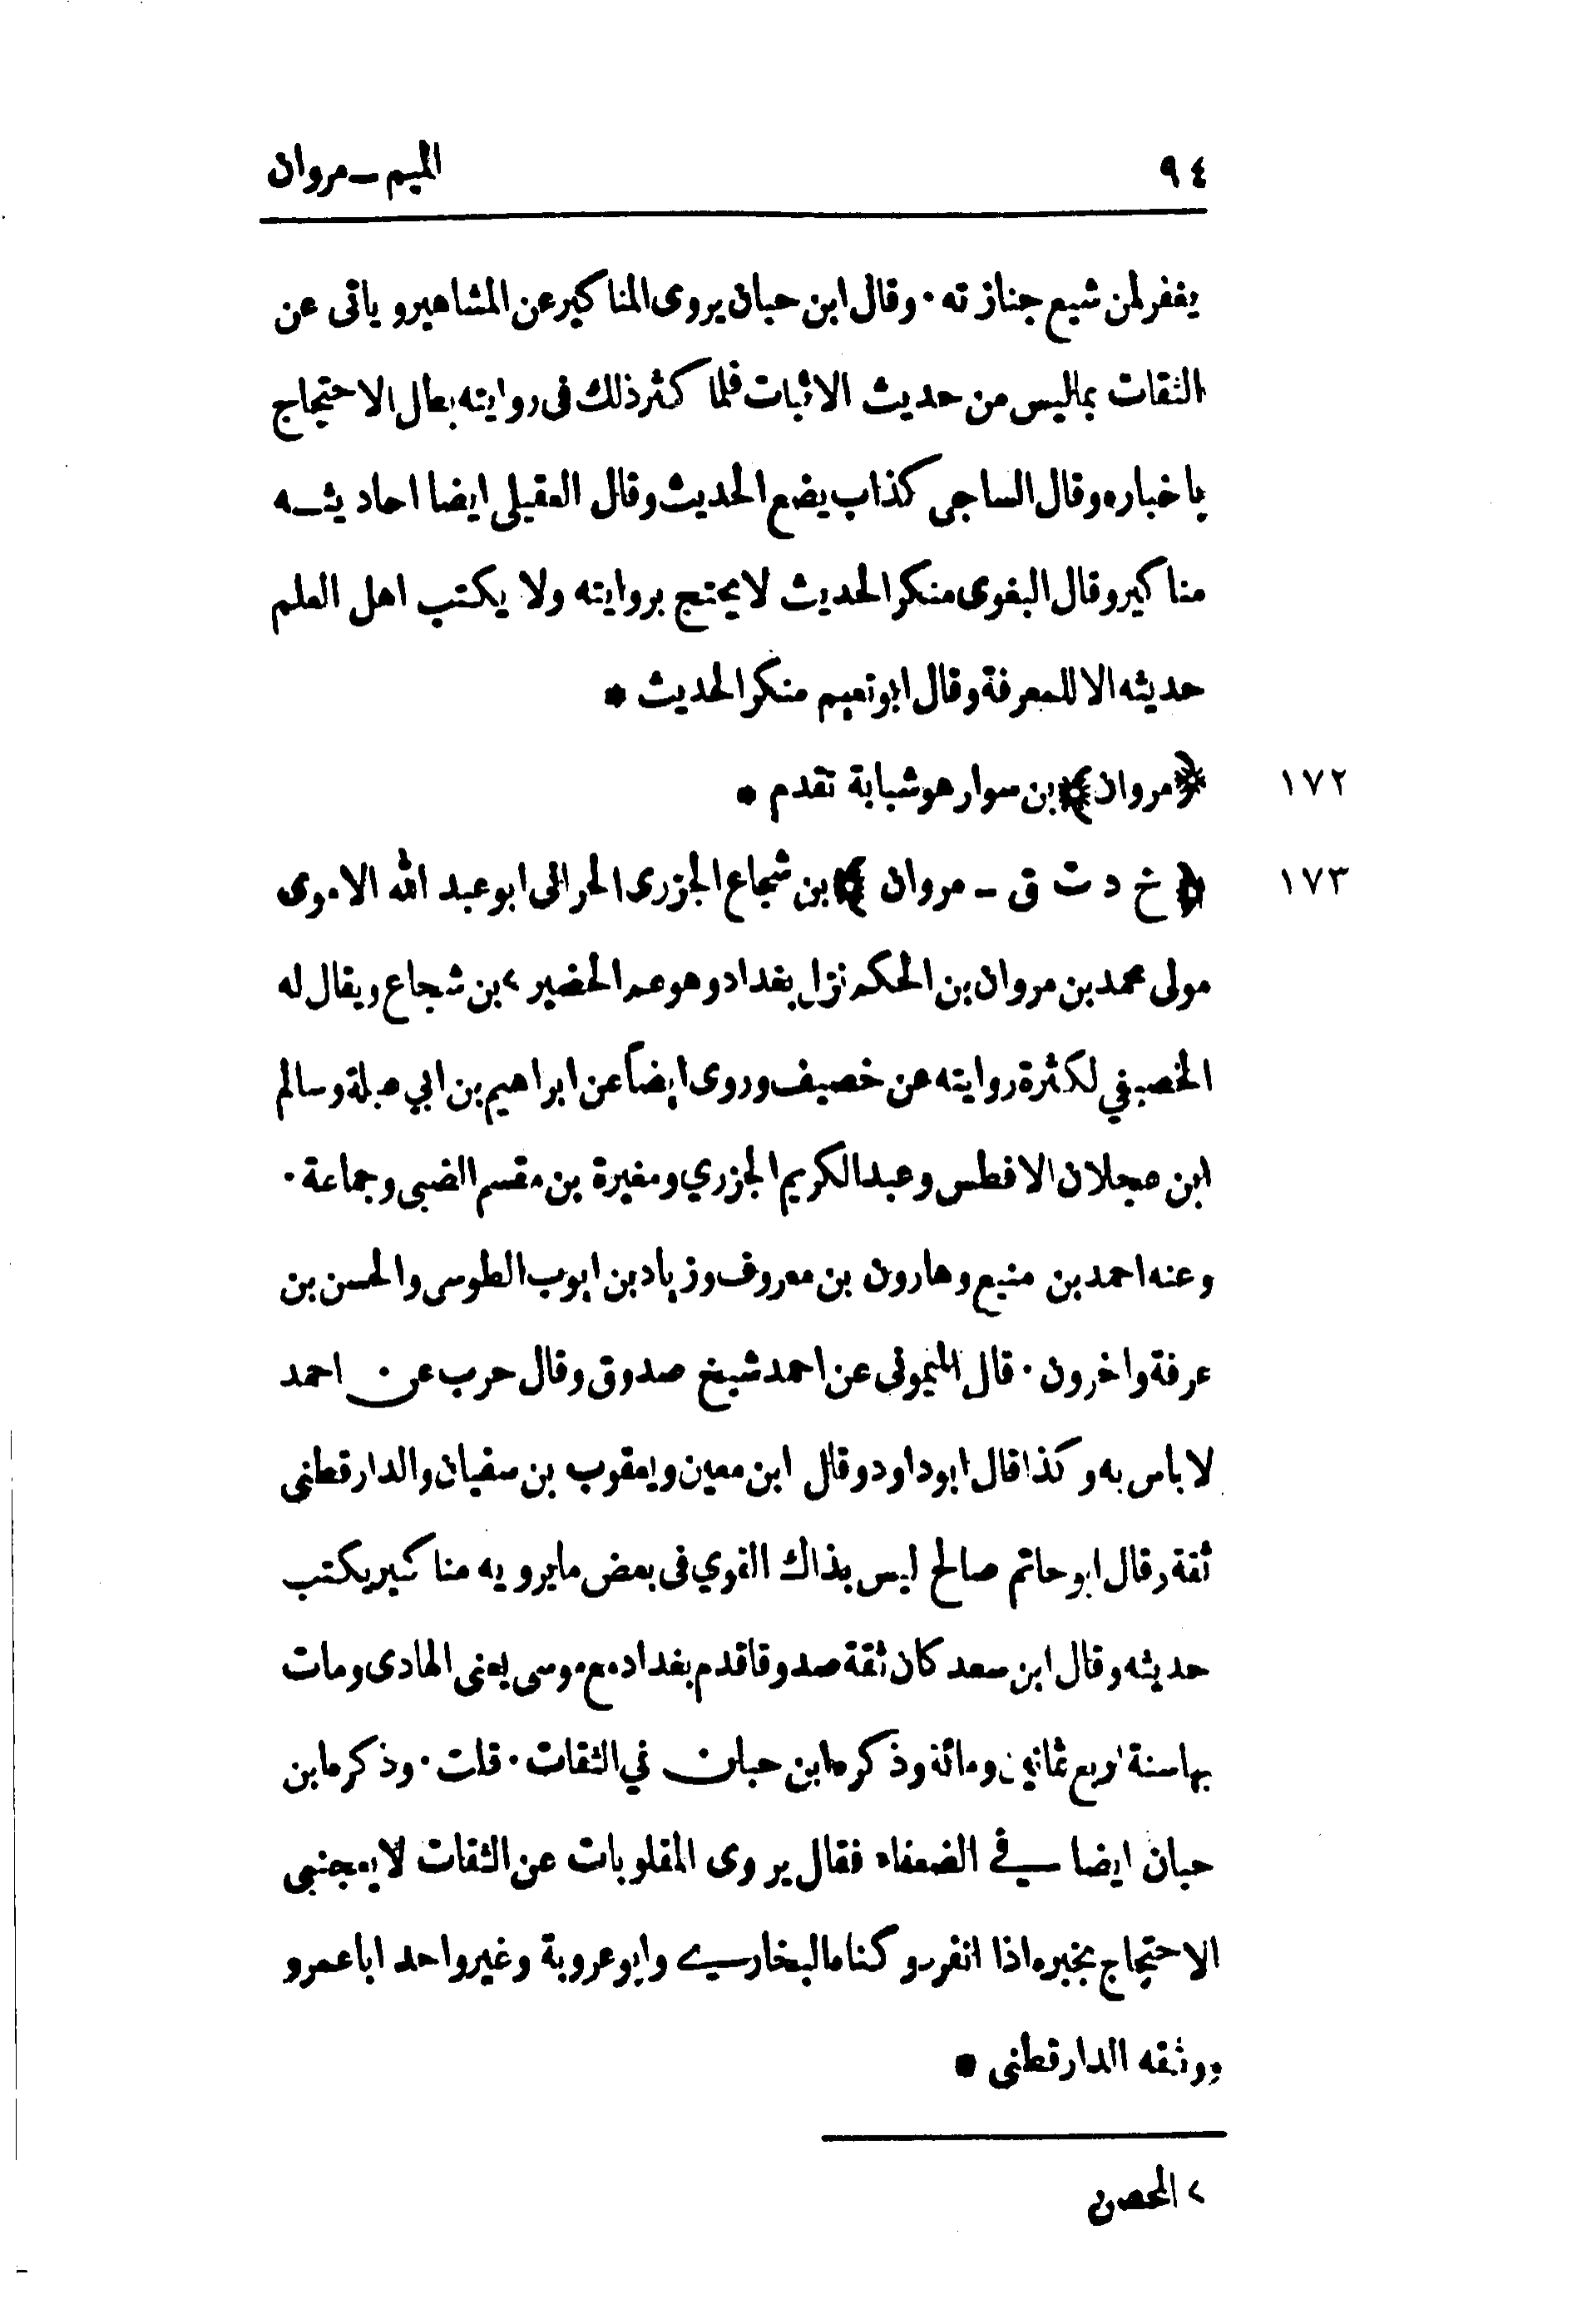 ٩٤ الميم – مروان
يغفر لمن شيع جنازته · وقال ابن حبان يروى المناكير عن المشاهير و ياتى عن
الثقات بماليس من حديث الاثبات فلما كثر ذلك فى روايته بطل الاحتجاج
باخباره وقال الساجى كذاب يضع الحديث وقال العقيلى ايضا احاديثــه
مناكير وقال البغوى منكر الحديث لا يحتج بروايته ولا يكتب اهل العلم
حديثه الا للمعرفة وقال ابو نعيم منكر الحديث *
١٧٢ ﴿مروان﴾ بن سوار هو شبابة تقدم *
١٧٣ ﴿ خ د ت ق – مروان ﴾ بن شجاع الجزرى الحرانى ابو عبد الله الاموى
مولى محمد بن مروان بن الحكم نزل بغداد وهو عم الخضير > بن شجاع ويقال له
الخصيفي لكثرة روايته عن خصيف وروى ايضاً عن ابراهيم بن ابي عبلة وسالم
ابن عجلان الافطس وعبد الكريم الجزري ومغيرة بن مقسم الضبى وجماعة ·
وعنه احمد بن منيع وهارون بن معروف وزياد بن ايوب الطوسى والحسن بن
عرفة واخرون · قال الميمونى عن احمد شيخ صدوق وقال حرب عن احمد
لا باس به وكذا قال ابو داود وقال ابن معين ويعقوب بن سفيان والدار قطنى
ثقة وقال ابو حاتم صالح ليس بذاك القوي فى بعض ما يرويه مناكير يكتب
حديثه وقال ابن سعد كان ثقة صدوقا قدم بغداد مع موسى يعنى الهادى ومات
بها سنة اربع ثمانين ومائة وذكره ابن حبان في الثقات · قلت · وذكره ابن
حبان ايضا في الضعفاء فقال يروى المقلوبات عن الثقات لا يعجبنى
الاحتجاج بخبره اذا انفرد و كناه البخارى وابو عروبة وغير واحد ابا عمرو
ووثقه الدار قطنى *
> الخصن